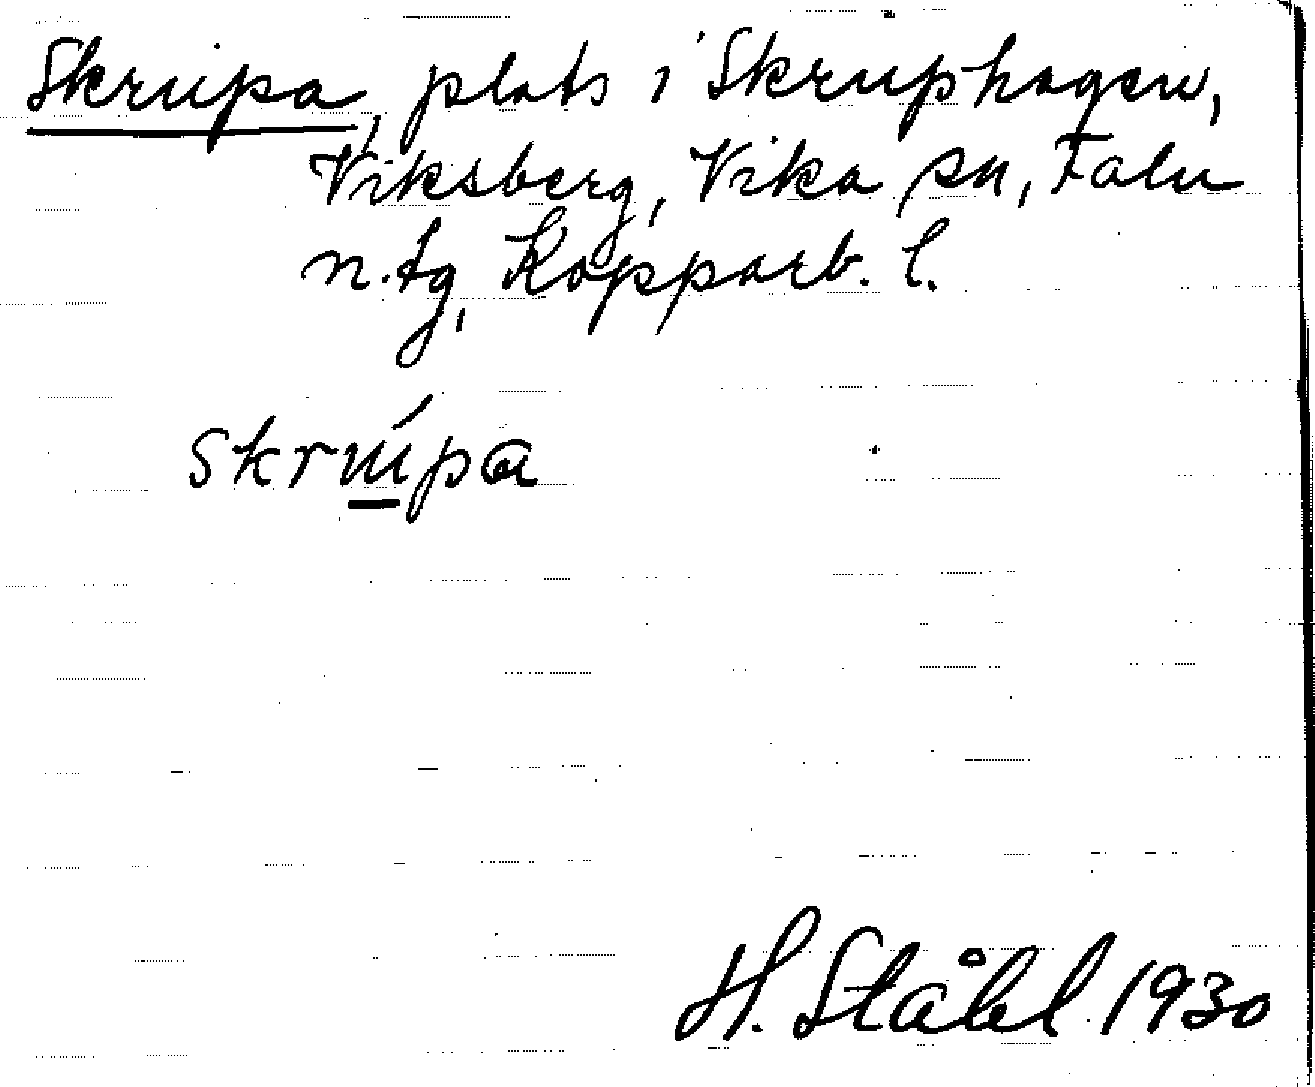 Skrupa, plats i Skruphagen,
Viksberg, Vika sn, Falu
n. tg, Kopparb. l.
skrú̱pa
H. Ståhl 1930